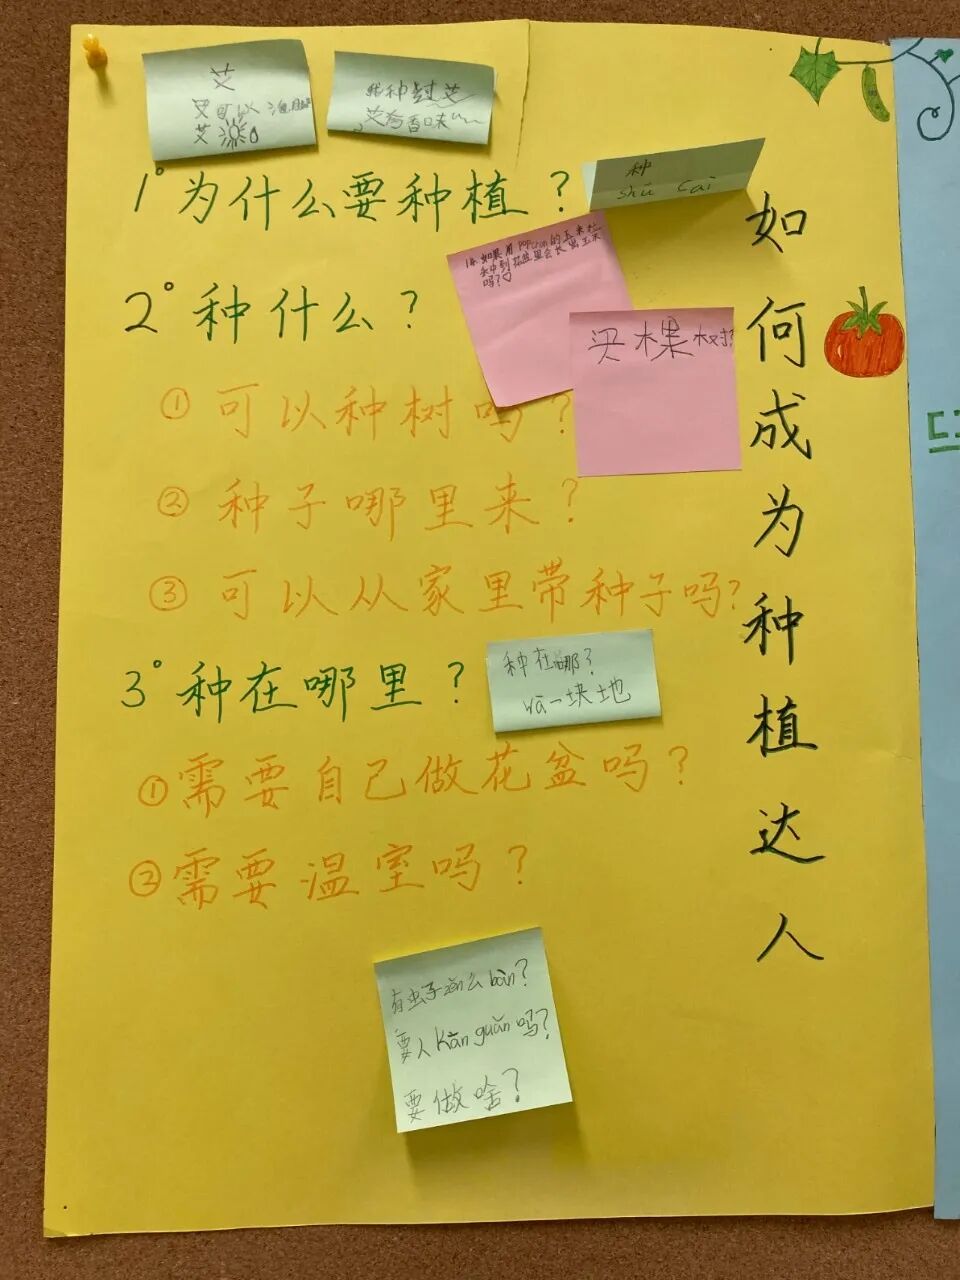 如何成为种植达人
艾
艾可以
艾
我种过艾
艾有香味
1°为什么要种植？
种
shū Cài
2°种什么？
如果用 popcron 的玉米粒
来中到花盆里会长出玉米
吗？
买棵树？
①可以种树吗？
②种子哪里来？
③可以从家里带种子吗？
3°种在哪里？
种在哪？
wā一块地
①需要自己做花盆吗？
②需要温室吗？
有虫子zěn么bàn？
要人kān guǎn吗？
要做啥？